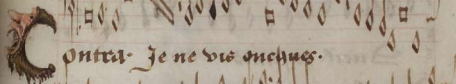 Contra. Je ne vis oncques.